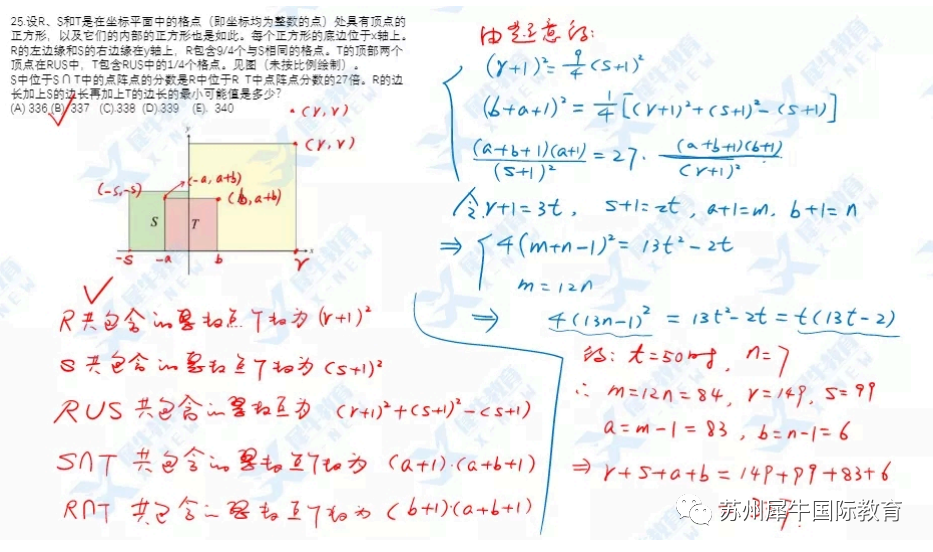 25.设R、S和T是在坐标平面中的格点（即坐标均为整数的点）处具有顶点的
正方形，以及它们的内部的正方形也是如此。每个正方形的底边位于x轴上。
R的左边缘和S的右边缘在y轴上，R包含9/4个与S相同的格点。T的顶部两个
顶点在RUS中，T包含RUS中的1/4个格点。见图（未按比例绘制）。
S中位于S∩T中的点阵点的分数是R中位于R T中点阵点分数的27倍。R的边
长加上S的边长再加上T的边长的最小可能值是多少?
(A) 336 (B) 337 (C).338 (D).339 (E). 340
(r, r)
y
(r, r)
(-s,-s)
(-a, a+b)
(b, a+b)
S
T
x
-s
-a
b
r
R共包含的整数点个数为 (r+1)²
S共包含的整数点个数为 (s+1)²
RUS 共包含的整数点为 (r+1)²+(s+1)²-(s+1)
S∩T 共包含的整数点个数为 (a+1)·(a+b+1)
R∩T 共包含的整数点个数为 (b+1)·(a+b+1)
由题意得:
(r+1)² = 9/4 (s+1)²
(b+a+1)² = 1/4 [(r+1)²+(s+1)²-(s+1)]
(a+b+1)(a+1)/(s+1)² = 27· (a+b+1)(b+1)/(r+1)²
令 r+1=3t, s+1=2t, a+1=m, b+1=n
⇒ 4(m+n-1)² = 13t²-2t
m=12n
⇒ 4(13n-1)² = 13t²-2t = t(13t-2)
得: t=50时, n=7
∴ m=12n=84, r=149, s=99
a=m-1=83, b=n-1=6
⇒ r+s+a+b=149+99+83+6
苏州犀牛国际教育
犀牛教育
X-NEW